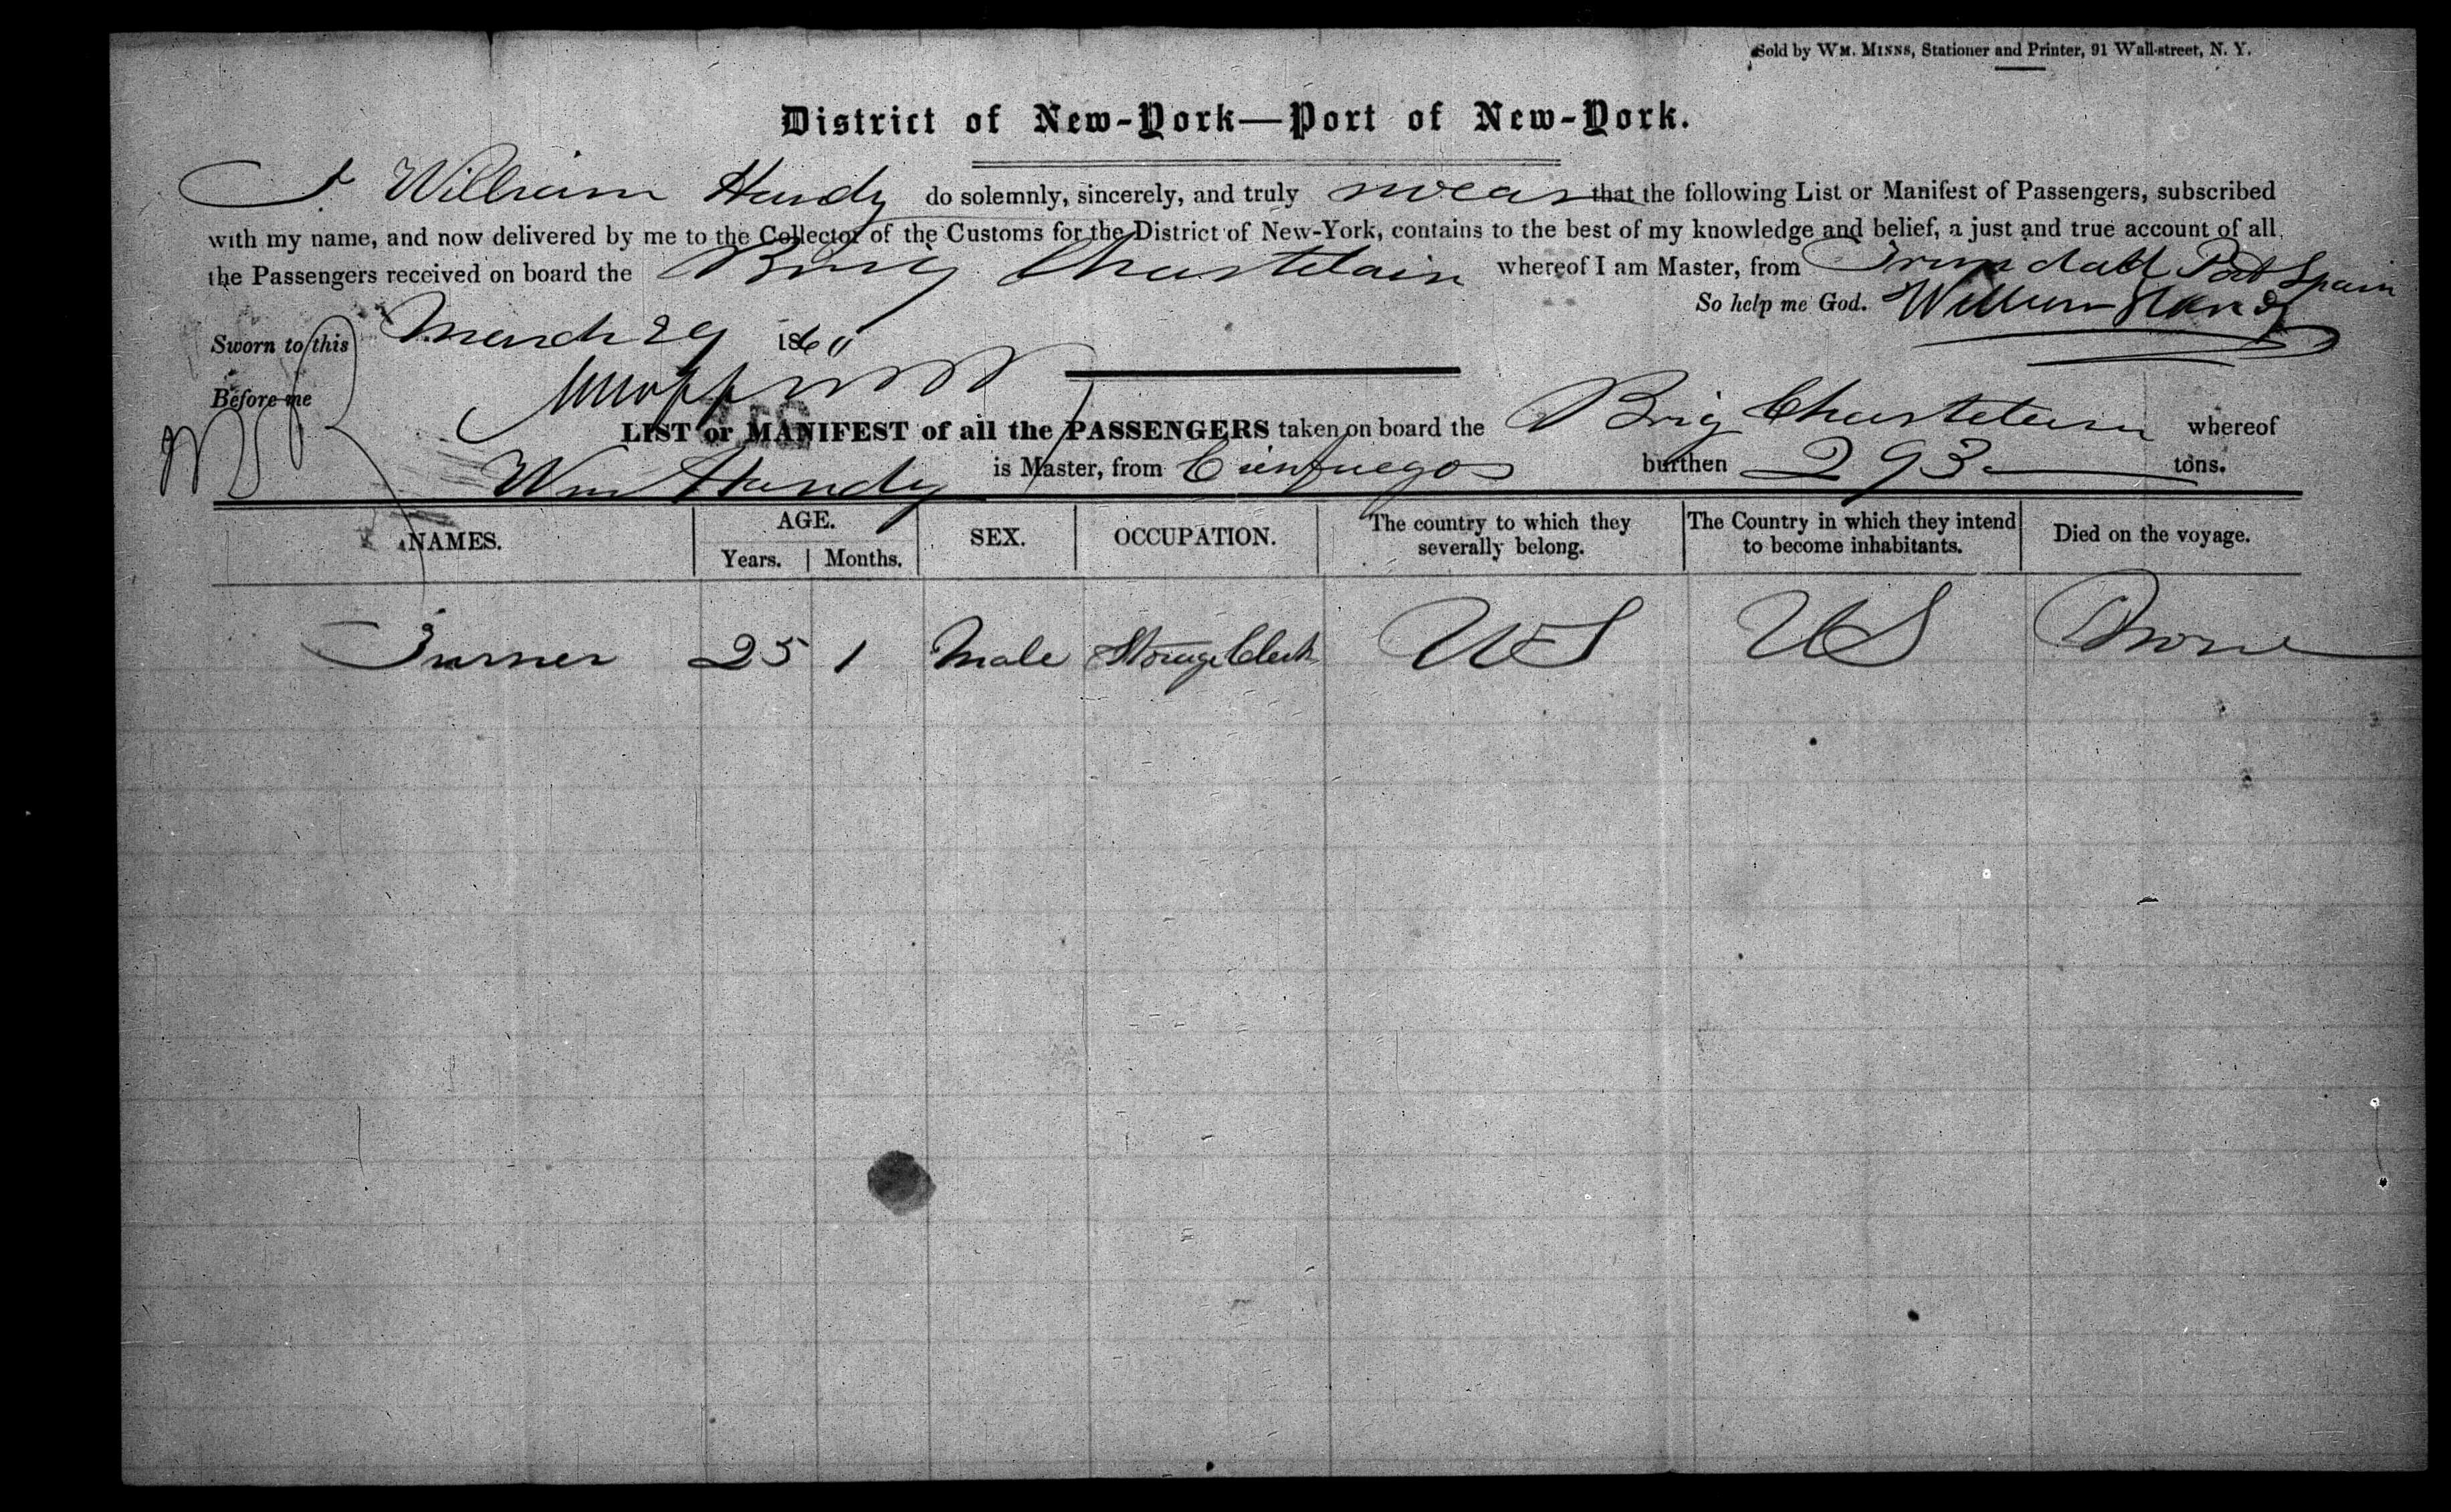 Sold by WM. MINNS, Stationer and Printer, 91 Wall-street, N. Y.
District of New-York—Port of New-York.
I William Handy do solemnly, sincerely, and truly swear that the following List or Manifest of Passengers, subscribed
with my name, and now delivered by me to the Collector of the Customs for the District of New-York, contains to the best of my knowledge and belief, a just and true account of all
the Passengers received on board the Brig Chastelain whereof I am Master, from Port Spain
So help me God. William Handy
Sworn to this March 29 186
Before me
LIST or MANIFEST of all the PASSENGERS taken on board the Brig Chastelain whereof
Wm Handy is Master, from Cienfuegos burthen 293 tons.
NAMES. AGE. SEX. OCCUPATION. The country to which they severally belong. The Country in which they intend to become inhabitants. Died on the voyage.
Years. Months.
Turner 25 1 Male Clerk US US None